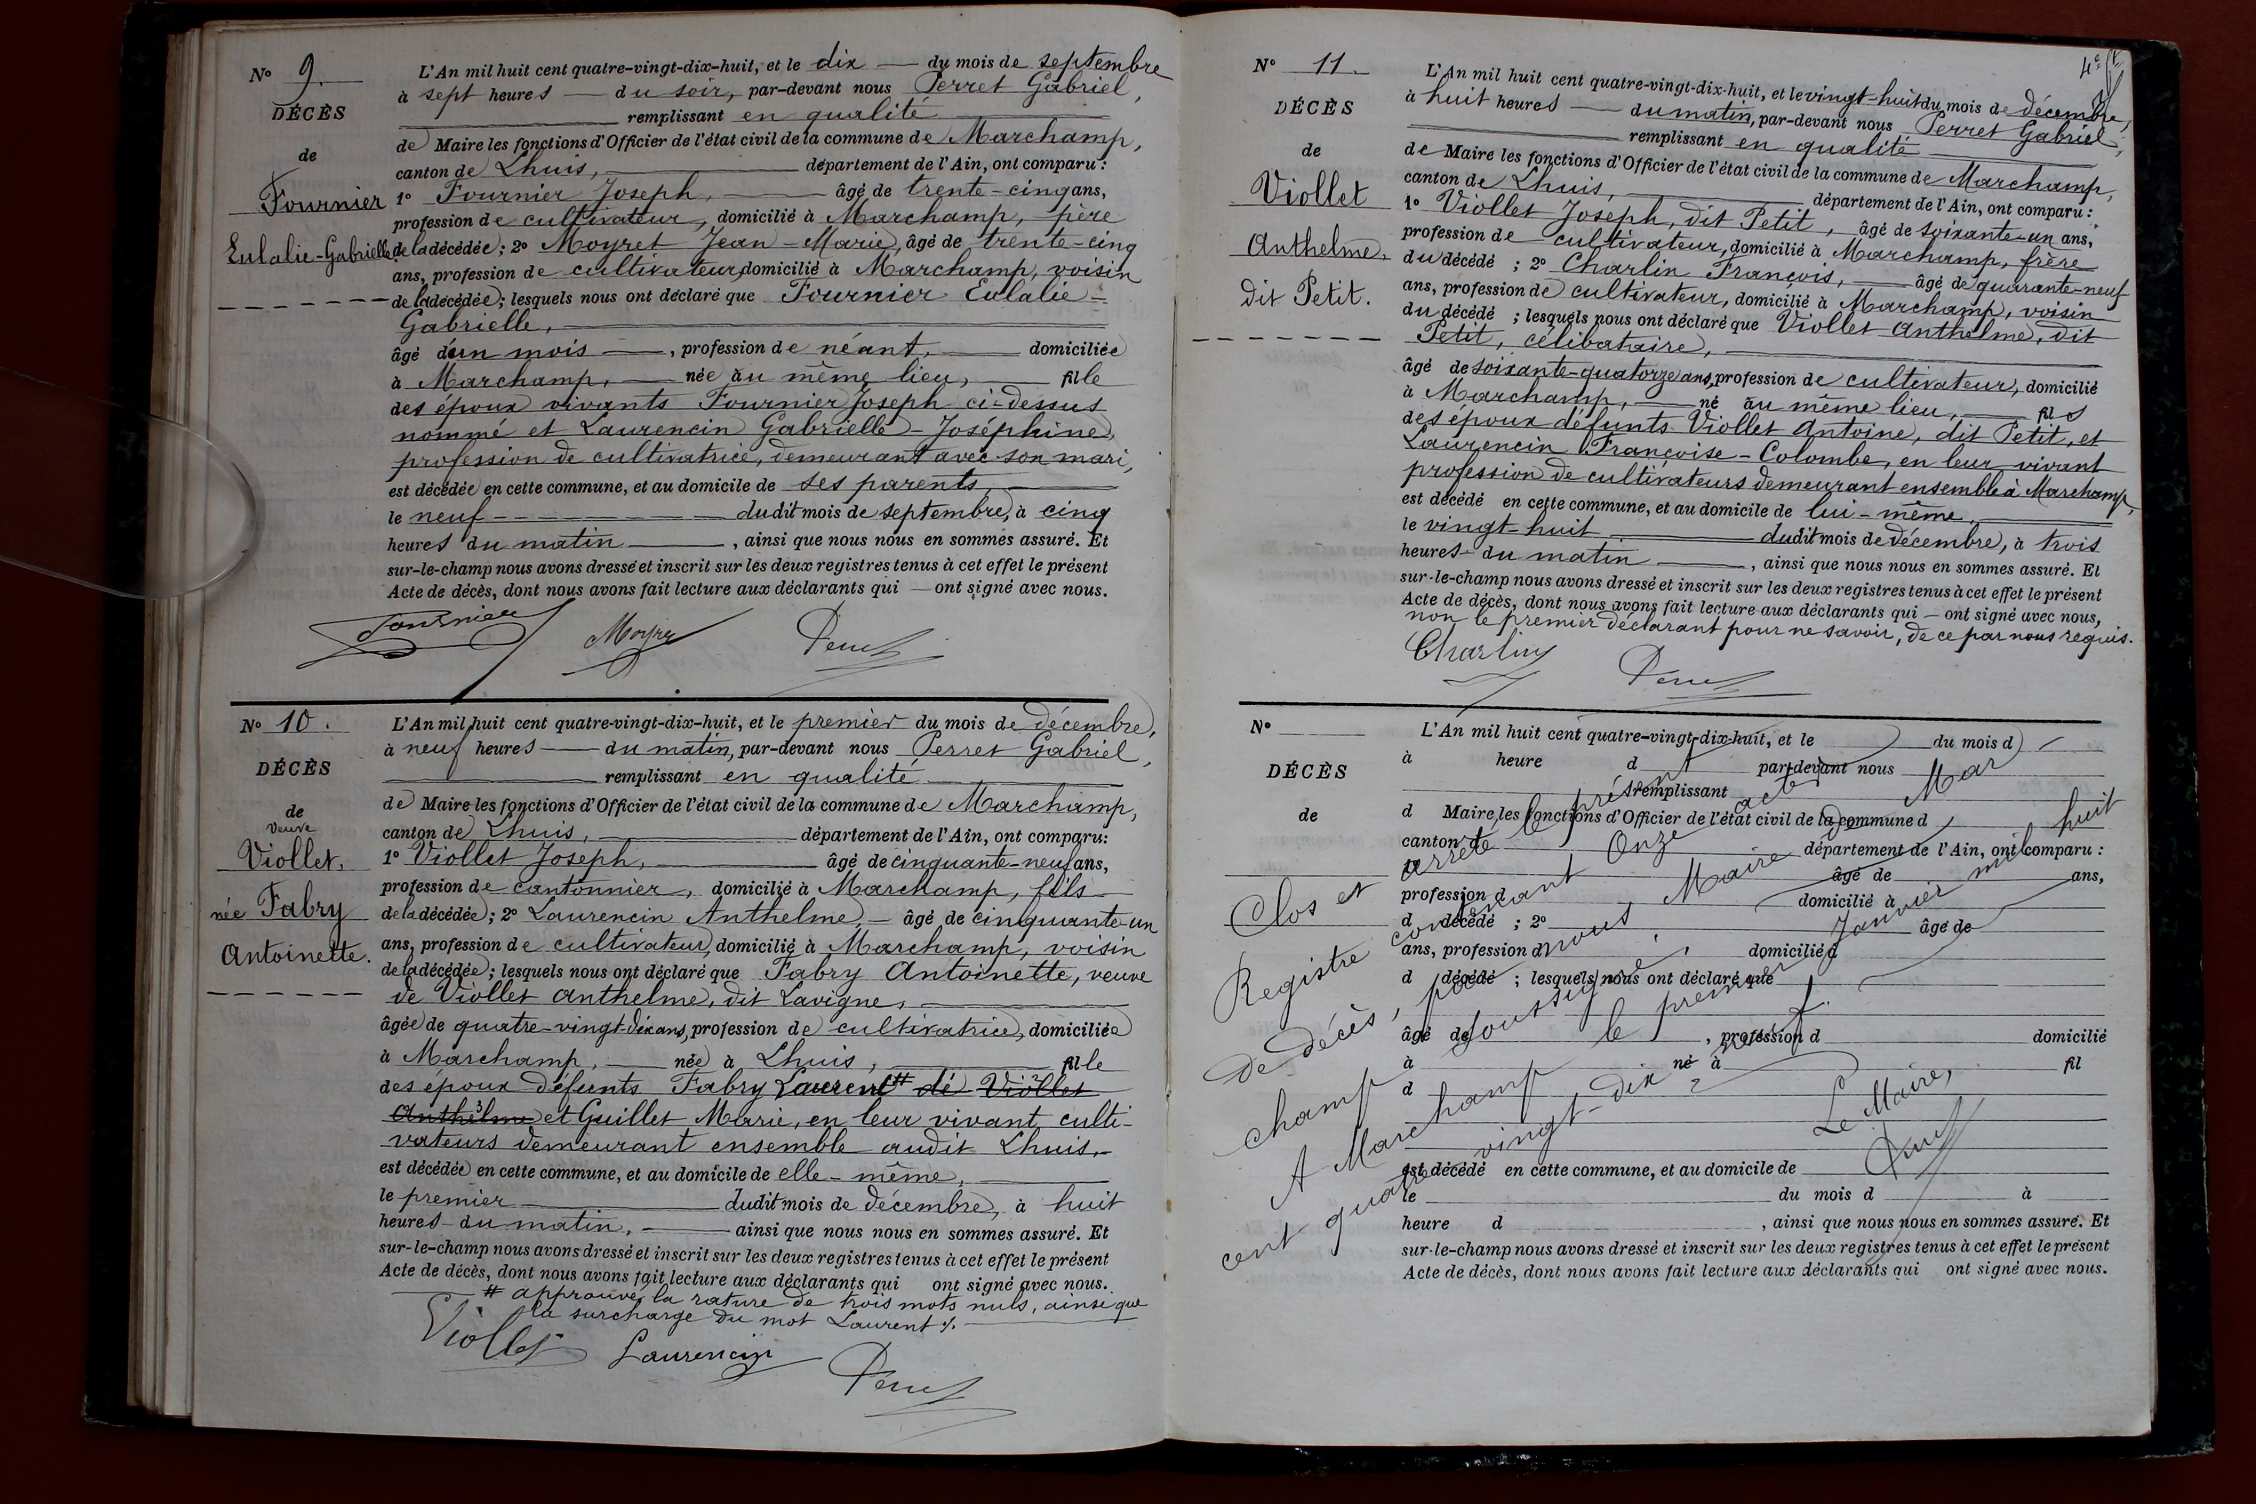 N° 9.
DÉCÈS
de
Fournier
Eulalie-Gabrielle.
L'An mil huit cent quatre-vingt-dix-huit, et le dix du mois de septembre
à sept heures du soir, par-devant nous Perret Gabriel,
remplissant en qualité
de Maire les fonctions d'Officier de l'état civil de la commune de Marchamp,
canton de Lhuis, département de l'Ain, ont comparu :
1° Fournier Joseph, âgé de trente-cinq ans,
profession de cultivateur, domicilié à Marchamp, père
de la décédée ; 2° Moyret Jean-Marie, âgé de trente-cinq
ans, profession de cultivateur, domicilié à Marchamp, voisin
de la décédée ; lesquels nous ont déclaré que Fournier Eulalie-
Gabrielle,
âgé d'un mois, profession de néant, domiciliée
à Marchamp, née au même lieu, fille
des époux vivants Fournier Joseph ci-dessus
nommé et Laurencin Gabrielle-Joséphine,
profession de cultivatrice, demeurant avec son mari,
est décédée en cette commune, et au domicile de ses parents,
le neuf dudit mois de septembre, à cinq
heures du matin, ainsi que nous nous en sommes assuré. Et
sur-le-champ nous avons dressé et inscrit sur les deux registres tenus à cet effet le présent
Acte de décès, dont nous avons fait lecture aux déclarants qui — ont signé avec nous.
Fournier Moyret Perret
N° 10.
DÉCÈS
de
Veuve
Viollet,
née Fabry
Antoinette.
L'An mil huit cent quatre-vingt-dix-huit, et le premier du mois de décembre,
à neuf heures du matin, par-devant nous Perret Gabriel,
remplissant en qualité
de Maire les fonctions d'Officier de l'état civil de la commune de Marchamp,
canton de Lhuis, département de l'Ain, ont comparu :
1° Viollet Joseph, âgé de cinquante-neuf ans,
profession de cantonnier, domicilié à Marchamp, fils
de la décédée ; 2° Laurencin Anthelme, âgé de cinquante-un
ans, profession de cultivateur, domicilié à Marchamp, voisin
de la décédée ; lesquels nous ont déclaré que Fabry Antoinette, veuve
de Viollet Anthelme, dit Lavigne,
âgée de quatre-vingt-dix ans, profession de cultivatrice, domiciliée
à Marchamp, née à Lhuis, fille
des époux défunts Fabry Laurent # de Viollet
Anthelme et Guillet Marie, en leur vivant culti-
vateurs demeurant ensemble audit Lhuis,
est décédée en cette commune, et au domicile de elle-même,
le premier dudit mois de décembre, à huit
heures du matin, ainsi que nous nous en sommes assuré. Et
sur-le-champ nous avons dressé et inscrit sur les deux registres tenus à cet effet le présent
Acte de décès, dont nous avons fait lecture aux déclarants qui ont signé avec nous.
# approuvé la rature de trois mots nuls, ainsi que
la surcharge du mot Laurent ./.
Viollet Laurencin Perret
4e
N° 11.
DÉCÈS
de
Viollet
Anthelme,
dit Petit.
L'An mil huit cent quatre-vingt-dix-huit, et le vingt-huit du mois de décembre,
à huit heures du matin, par-devant nous Perret Gabriel,
remplissant en qualité
de Maire les fonctions d'Officier de l'état civil de la commune de Marchamp,
canton de Lhuis, département de l'Ain, ont comparu :
1° Viollet Joseph, dit Petit, âgé de soixante-un ans,
profession de cultivateur, domicilié à Marchamp, frère
du décédé ; 2° Charlin François, âgé de quarante-neuf
ans, profession de cultivateur, domicilié à Marchamp, voisin
du décédé ; lesquels nous ont déclaré que Viollet Anthelme, dit
Petit, célibataire,
âgé de soixante-quatorze ans, profession de cultivateur, domicilié
à Marchamp, né au même lieu, fils
des époux défunts Viollet Antoine, dit Petit, et
Laurencin Françoise-Colombe, en leur vivant
profession de cultivateurs demeurant ensemble à Marchamp,
est décédé en cette commune, et au domicile de lui-même,
le vingt-huit dudit mois de décembre, à trois
heures du matin, ainsi que nous nous en sommes assuré. Et
sur-le-champ nous avons dressé et inscrit sur les deux registres tenus à cet effet le présent
Acte de décès, dont nous avons fait lecture aux déclarants qui — ont signé avec nous,
non le premier déclarant pour ne savoir, de ce par nous requis.
Charlin Perret
N°
DÉCÈS
de
L'An mil huit cent quatre-vingt-dix-huit, et le du mois d
à heure d par-devant nous
remplissant
d Maire les fonctions d'Officier de l'état civil de la commune d
canton d département de l'Ain, ont comparu :
1° âgé de ans,
profession d domicilié à
d décédé ; 2° âgé de
ans, profession d domicilié à
d décédé ; lesquels nous ont déclaré que
âgé de , profession d domicilié
à né à fil
d
est décédé en cette commune, et au domicile de
le du mois d à
heure d , ainsi que nous nous en sommes assuré. Et
sur-le-champ nous avons dressé et inscrit sur les deux registres tenus à cet effet le présent
Acte de décès, dont nous avons fait lecture aux déclarants qui ont signé avec nous.
Clos et arrêté le présent
Registre contenant Onze actes
de décès, par nous Maire de Mar
champ soussigné,
A Marchamp le premier Janvier mil huit
cent quatre vingt-dix neuf.
Le Maire,
Perret